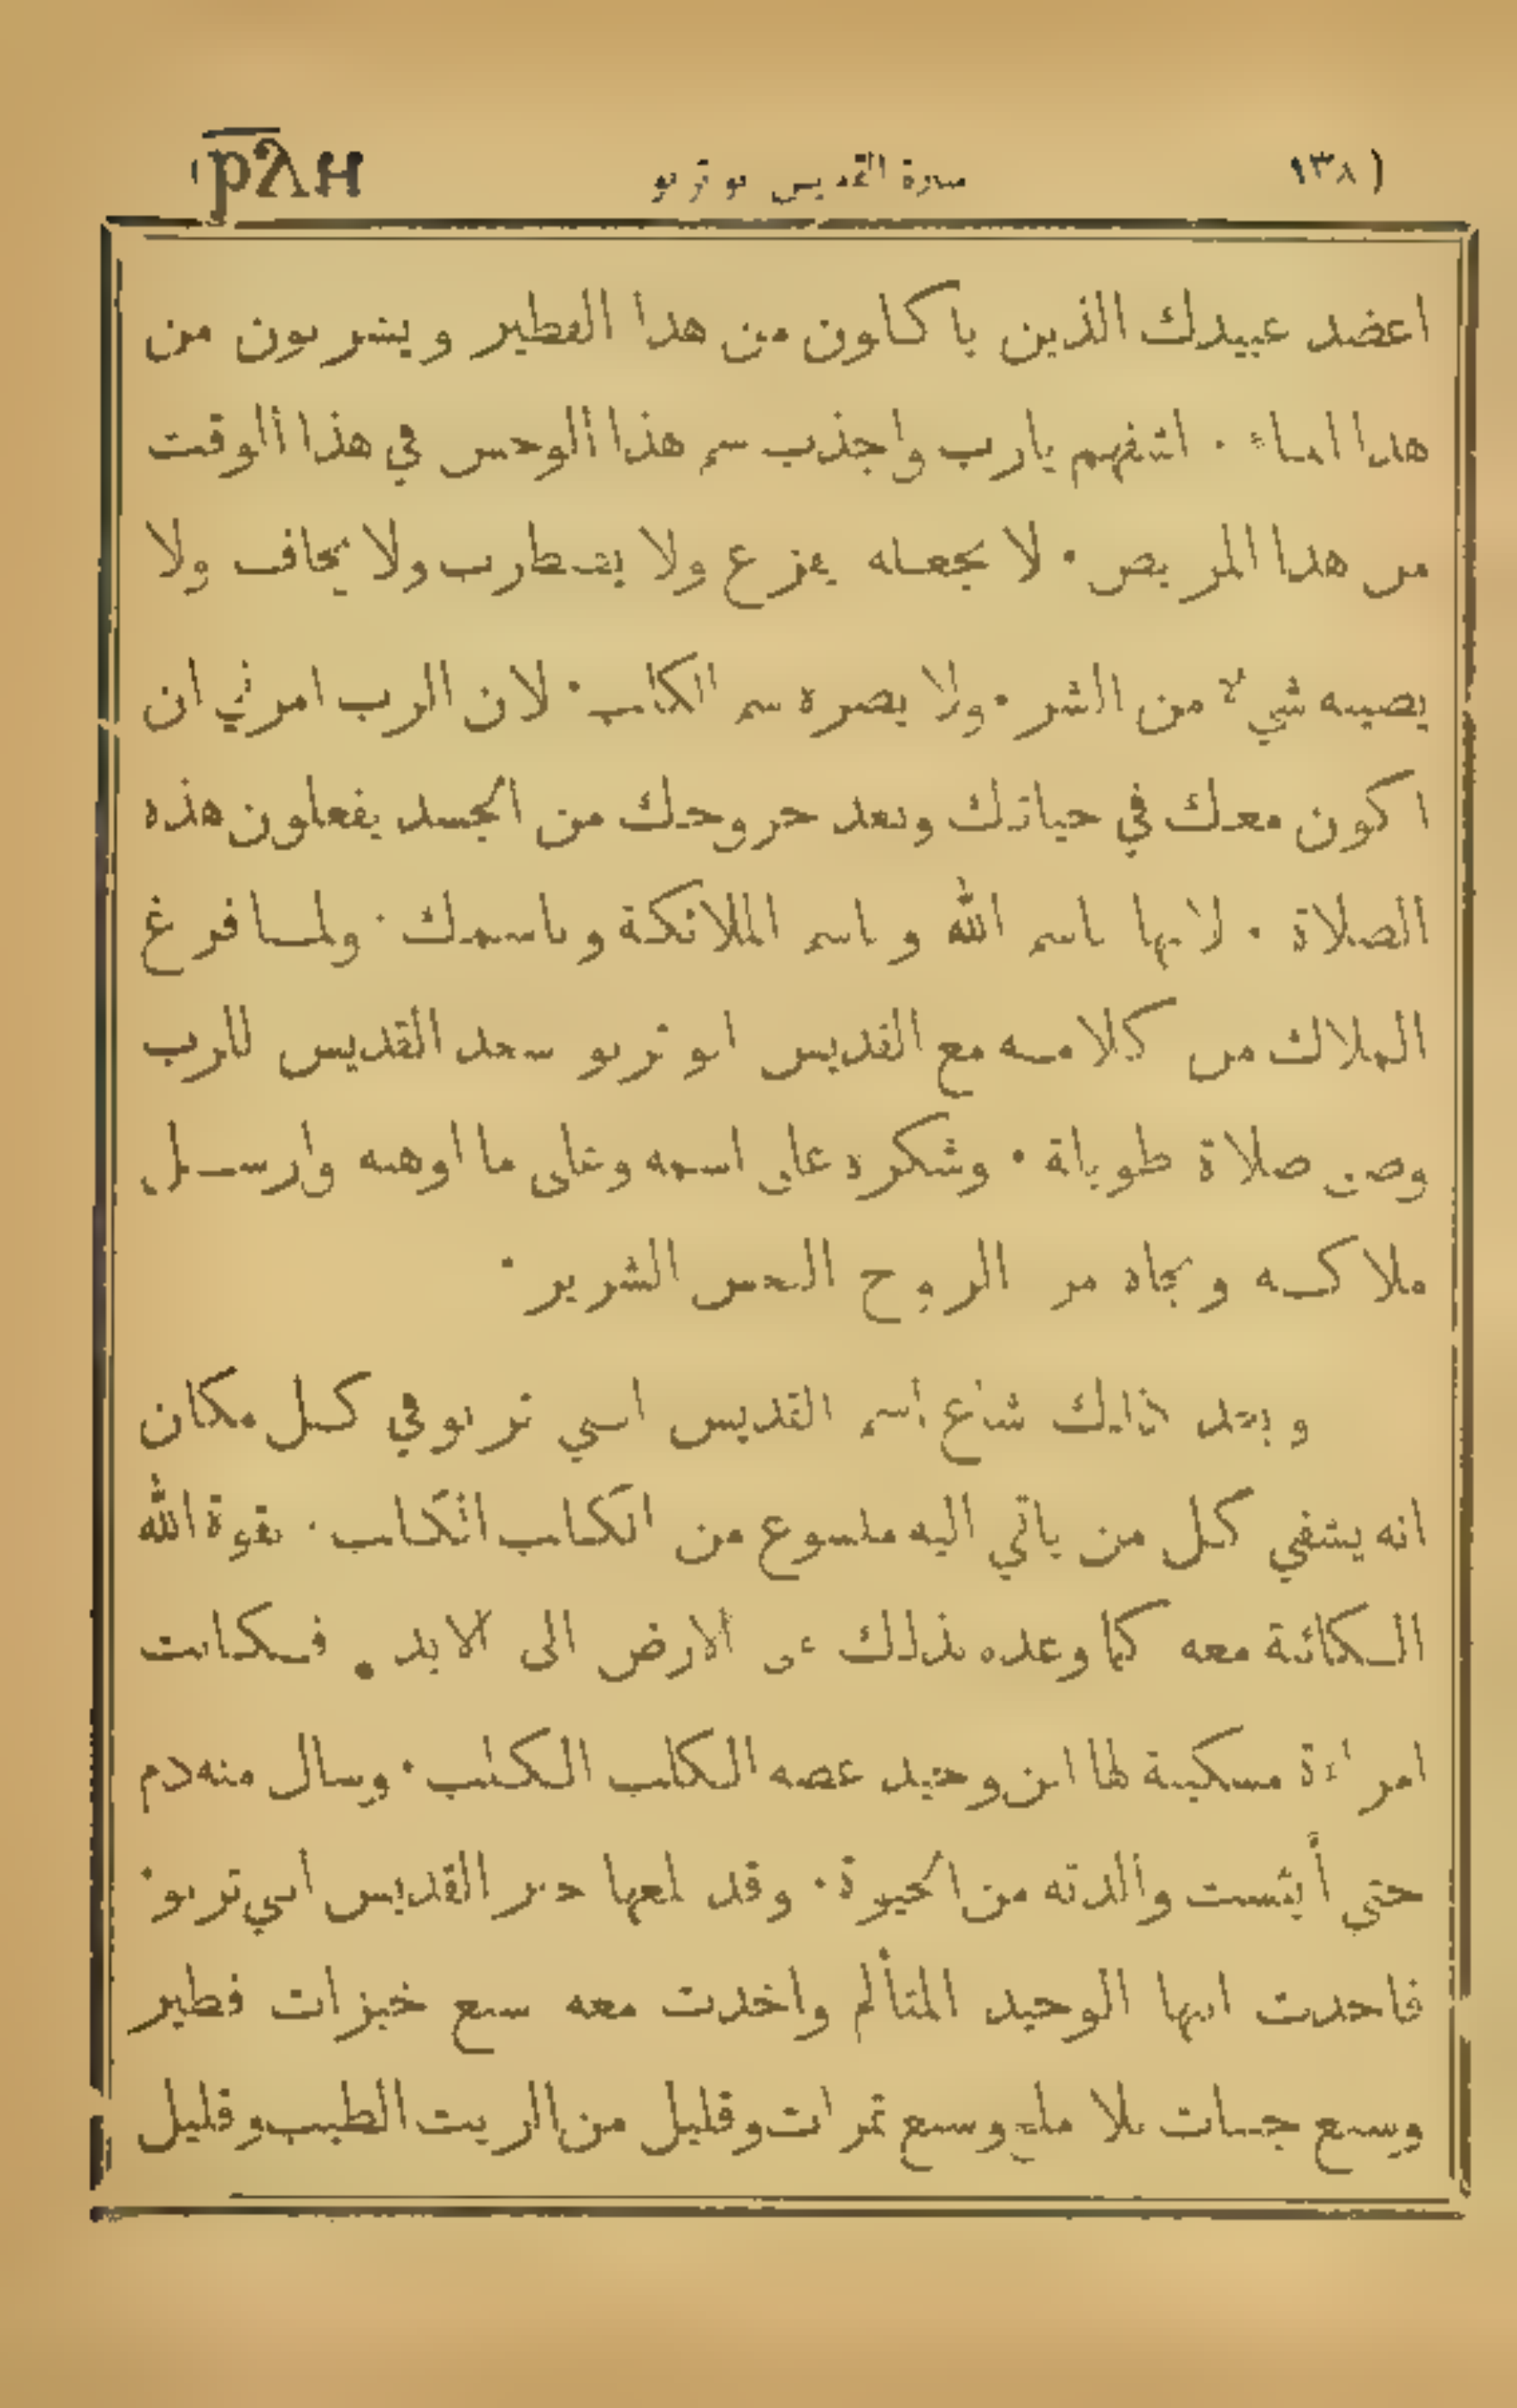 (١٣٨ سيرة القديس بو تربو ⲣⲗⲏ
اعضد عبيدك الذين ياكلون من هذا الفطير ويشربون من
هذا الماء . اشفهم يارب واجذب سم هذا الوحس في هذا الوقت
من هذا المريض . لا تجعله يفزع ولا يضطرب ولا يخاف ولا
يصيبه شيء من الشر . ولا يضره سم الكلب . لان الرب امرني ان
اكون معك في حياتك وبعد خروجك من الجسد يفعلون هذه
الصلاة . لانها باسم الله و باسم الملائكة وباسمك . ولما فرغ
الملاك من كلامه مع القديس ابو تربو سجد القديس للرب
وصلى صلاة طويلة . وشكره على اسمه وعلى ما اوهبه وارسل
ملاكه ونجاه من الروح النجس الشرير .
وبعد ذلك شاع اسم القديس ابي تربو في كل مكان
انه يشفي كل من ياتي اليه ملسوع من الكلب الكلب . بقوة الله
الكائنة معه كما وعده بذلك على الارض الى الابد . فكانت
امراءة مسكينة لها ابن وحيد عضه الكلب الكلب . وسال منه دم
حتى أيئست والدته من الحيوة . وقد بلغها خبر القديس ابي تربو .
فاخدت ابنها الوحيد المتألم واخدت معه سبع خبزات فطير
وسبع جبنات بلا ملح وسبع تمرات وقليل من الزيت الطيب وقليل